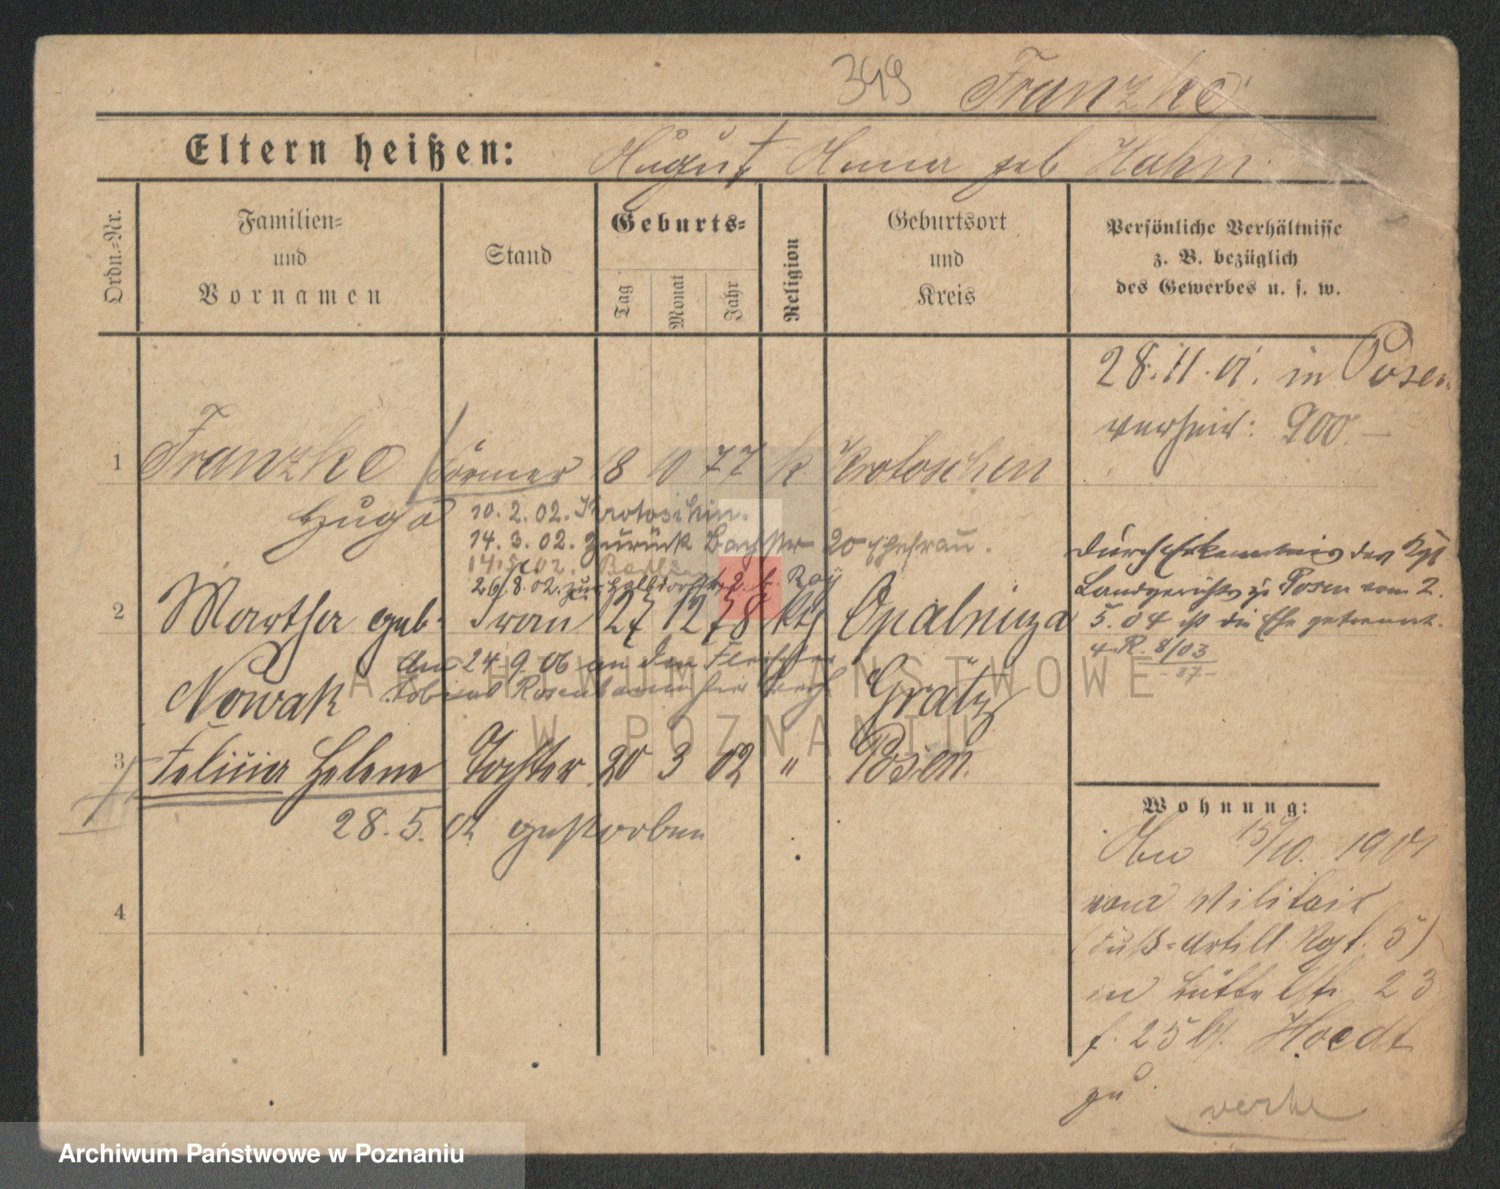 349 Franzke
Eltern heißen: August, Anna geb Hahn.
Ordn.=Nr.
Familien=
und
Vornamen
Stand
Geburts=
Tag
Monat
Jahr
Religion
Geburtsort
und
Kreis
Persönliche Verhältnisse
z. B. bezüglich
des Gewerbes u. s. w.
28.11.01. in Posen
verheir: 900.–
1 Franzke Former 18 10 77 k Krotoschin
Hugo
10.2.02. Krotoschin.
14.3.02. zurück 20 Ehefrau.
26/8.02. zur
2 Martha geb. Frau 27 12 78 kth Opaleniza
Nowak Grätz
am 24.9.06 an den Fleischer
Tobias
durch Erkenntnis des Kgl
Landgerichts zu Posen vom 2.
5.04 ist die Ehe getrennt.
4. R. 8/03
3 Felicia Helene Tochter 20 3 02 " Posen.
28.5.02 gestorben
4
Wohnung:
15/10. 1901
vom Militair
(Fuß=Artill. Rgt. 5)
in 23
f. 25 bt. Hoedt
zu
verhe
ARCHIWUM PAŃSTWOWE
W POZNANIU
Archiwum Państwowe w Poznaniu